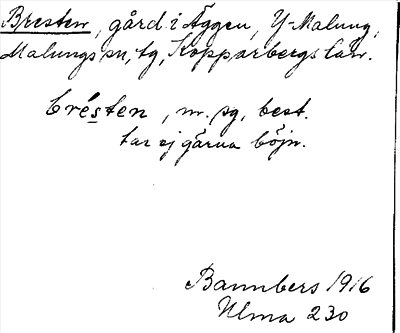 Bresten, gård i Äggen, Y-Malung,
Malungs sn, tg, Kopparbergs län.
brésten, m. sg, best.
tar ej gärna böjn.
Bannbers 1916
Ulma 230